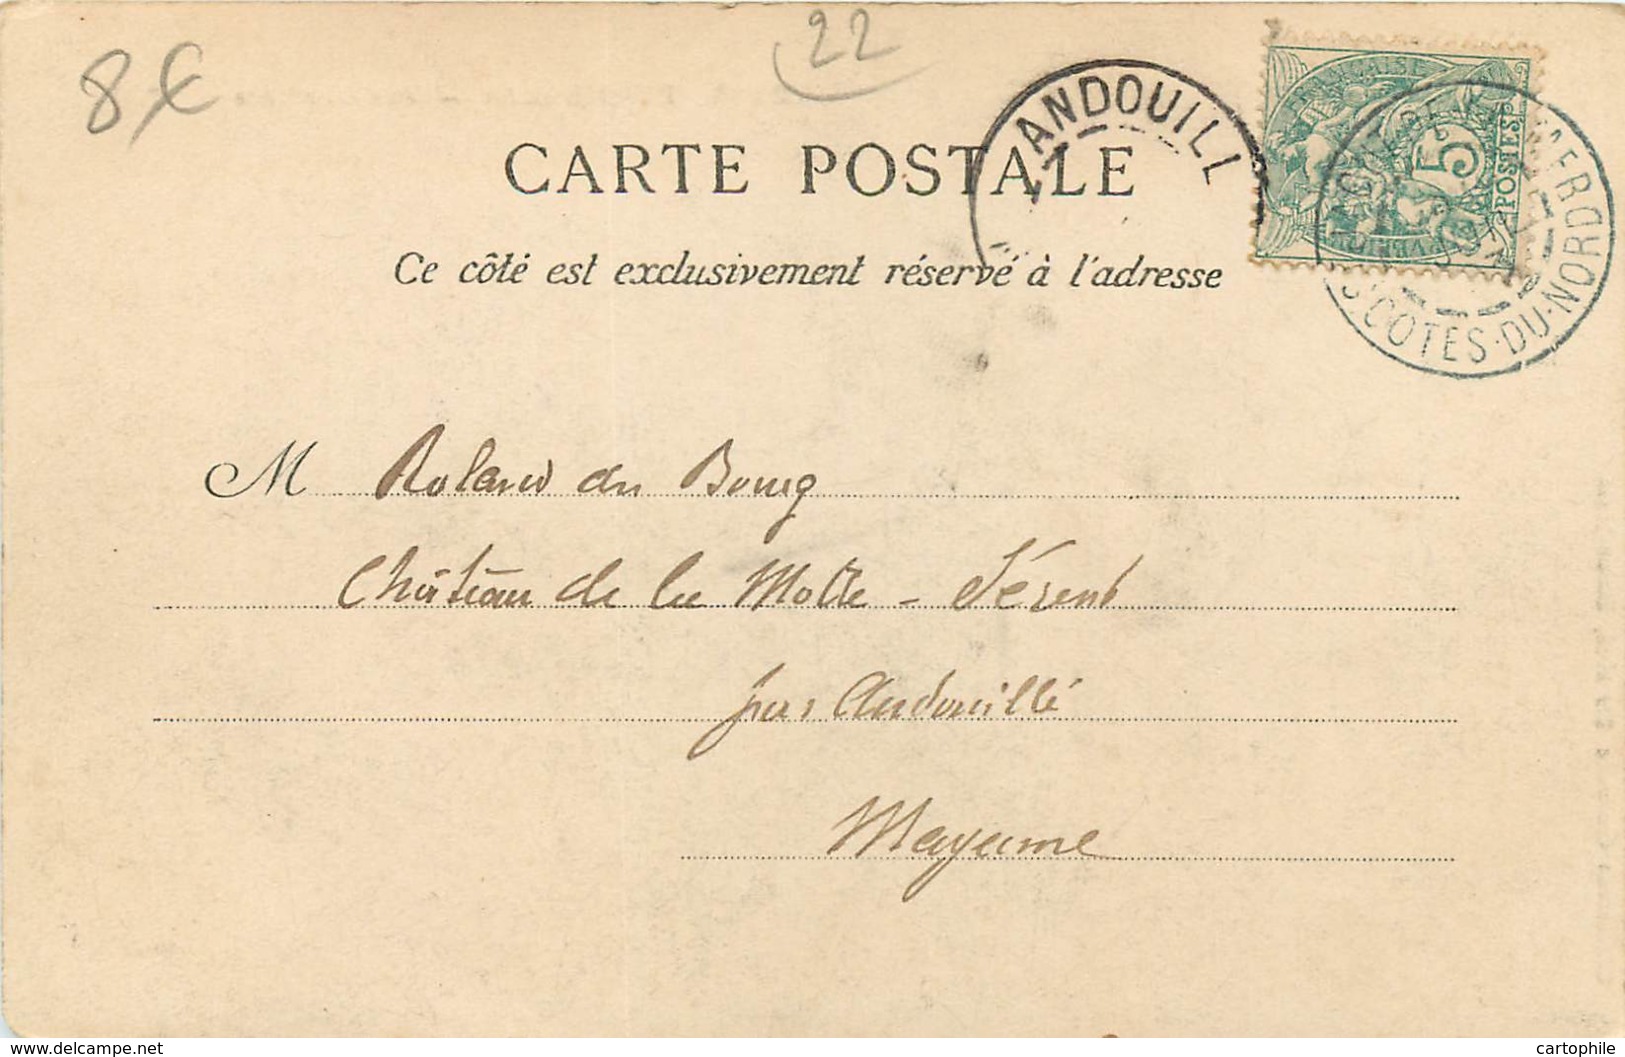 8€
22
ANDOUILL
FRANÇAISE
5
POSTES
COTES-DU-NORD
CARTE POSTALE
Ce côté est exclusivement réservé à l'adresse
M Roland du Bourg
Château de la Motte - Sérent
par Andouillé
Mayenne
delcampe.net
cartophile